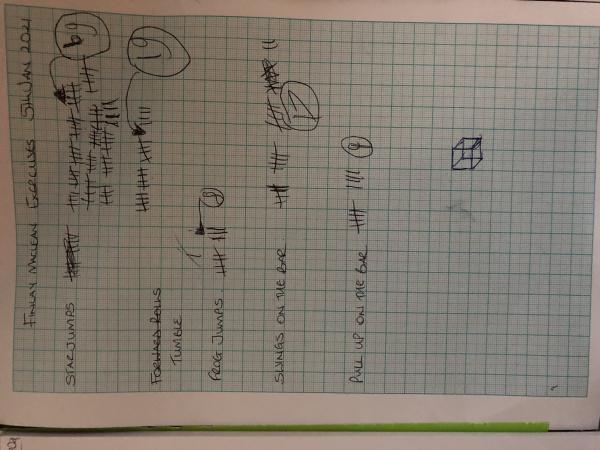 FINLAY MACLEAN EXERCISES 5TH JAN 2021
STAR JUMPS 69
FORWARD ROLLS 19
TUMBLE
FROG JUMPS 8
SWINGS ON THE BAR 17
PULL UP ON THE BAR 9